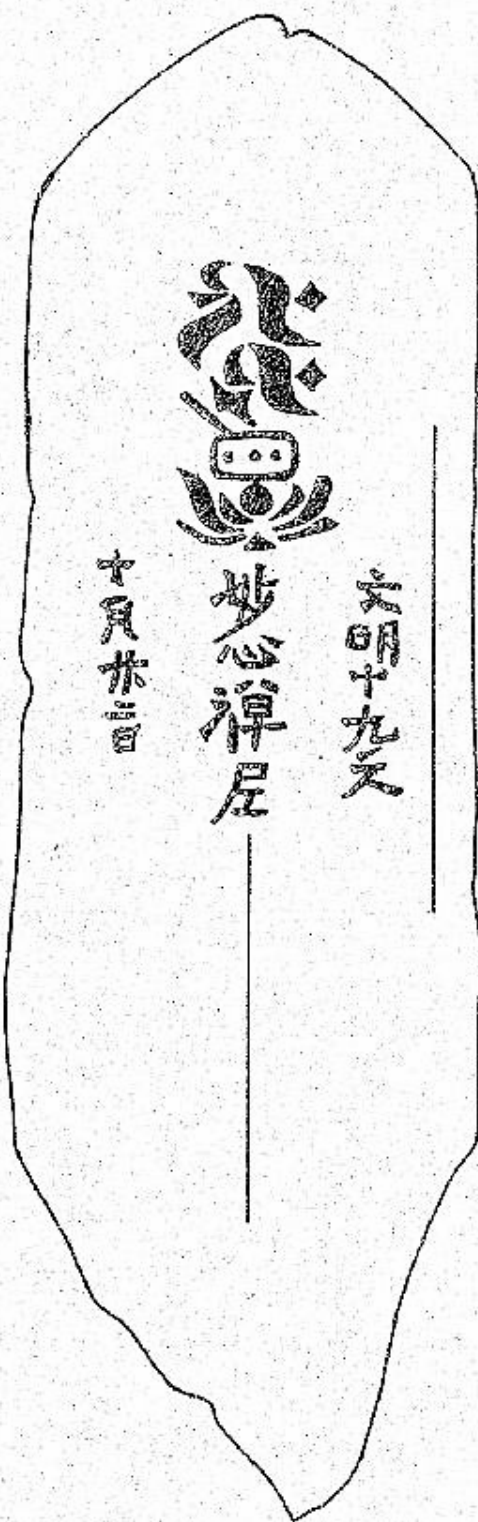 文明十九天
妙心禅尼
十月廿